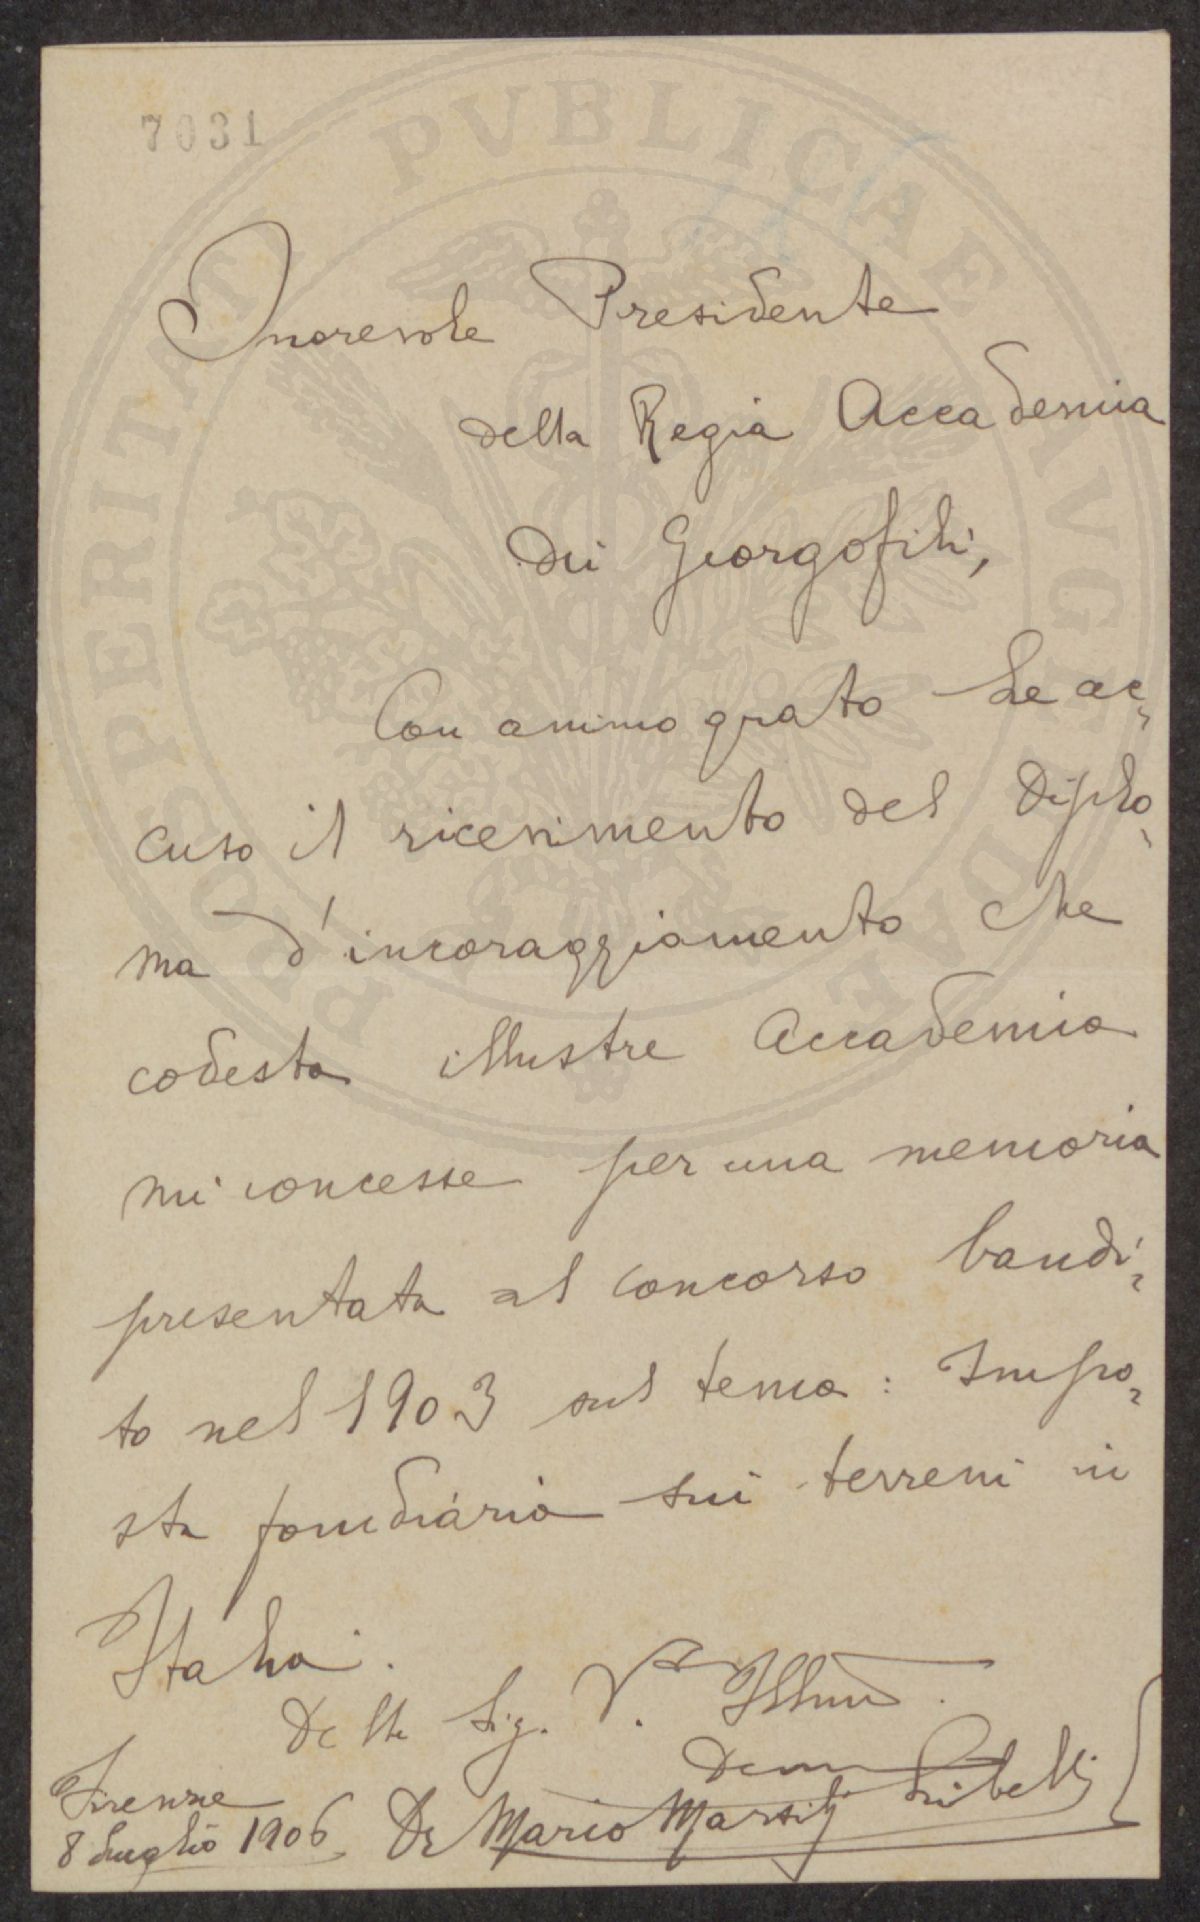 7031
PROSPERITATI PVBLICAE AVGENDAE
Onorevole Presidente
della Regia Accademia
dei Georgofili,
Con animo grato Le ac=
cuso il ricevimento del Diplo=
ma d'incoraggiamento che
codesta illustre Accademia
mi concesse per una memoria
presentata al concorso bandi=
to nel 1903 sul tema: Impo=
sta fondiaria sui terreni in
Italia.
Della Sig. V. Illma
Firenze
8 Luglio 1906 Dr Mario Marsilj Libelli